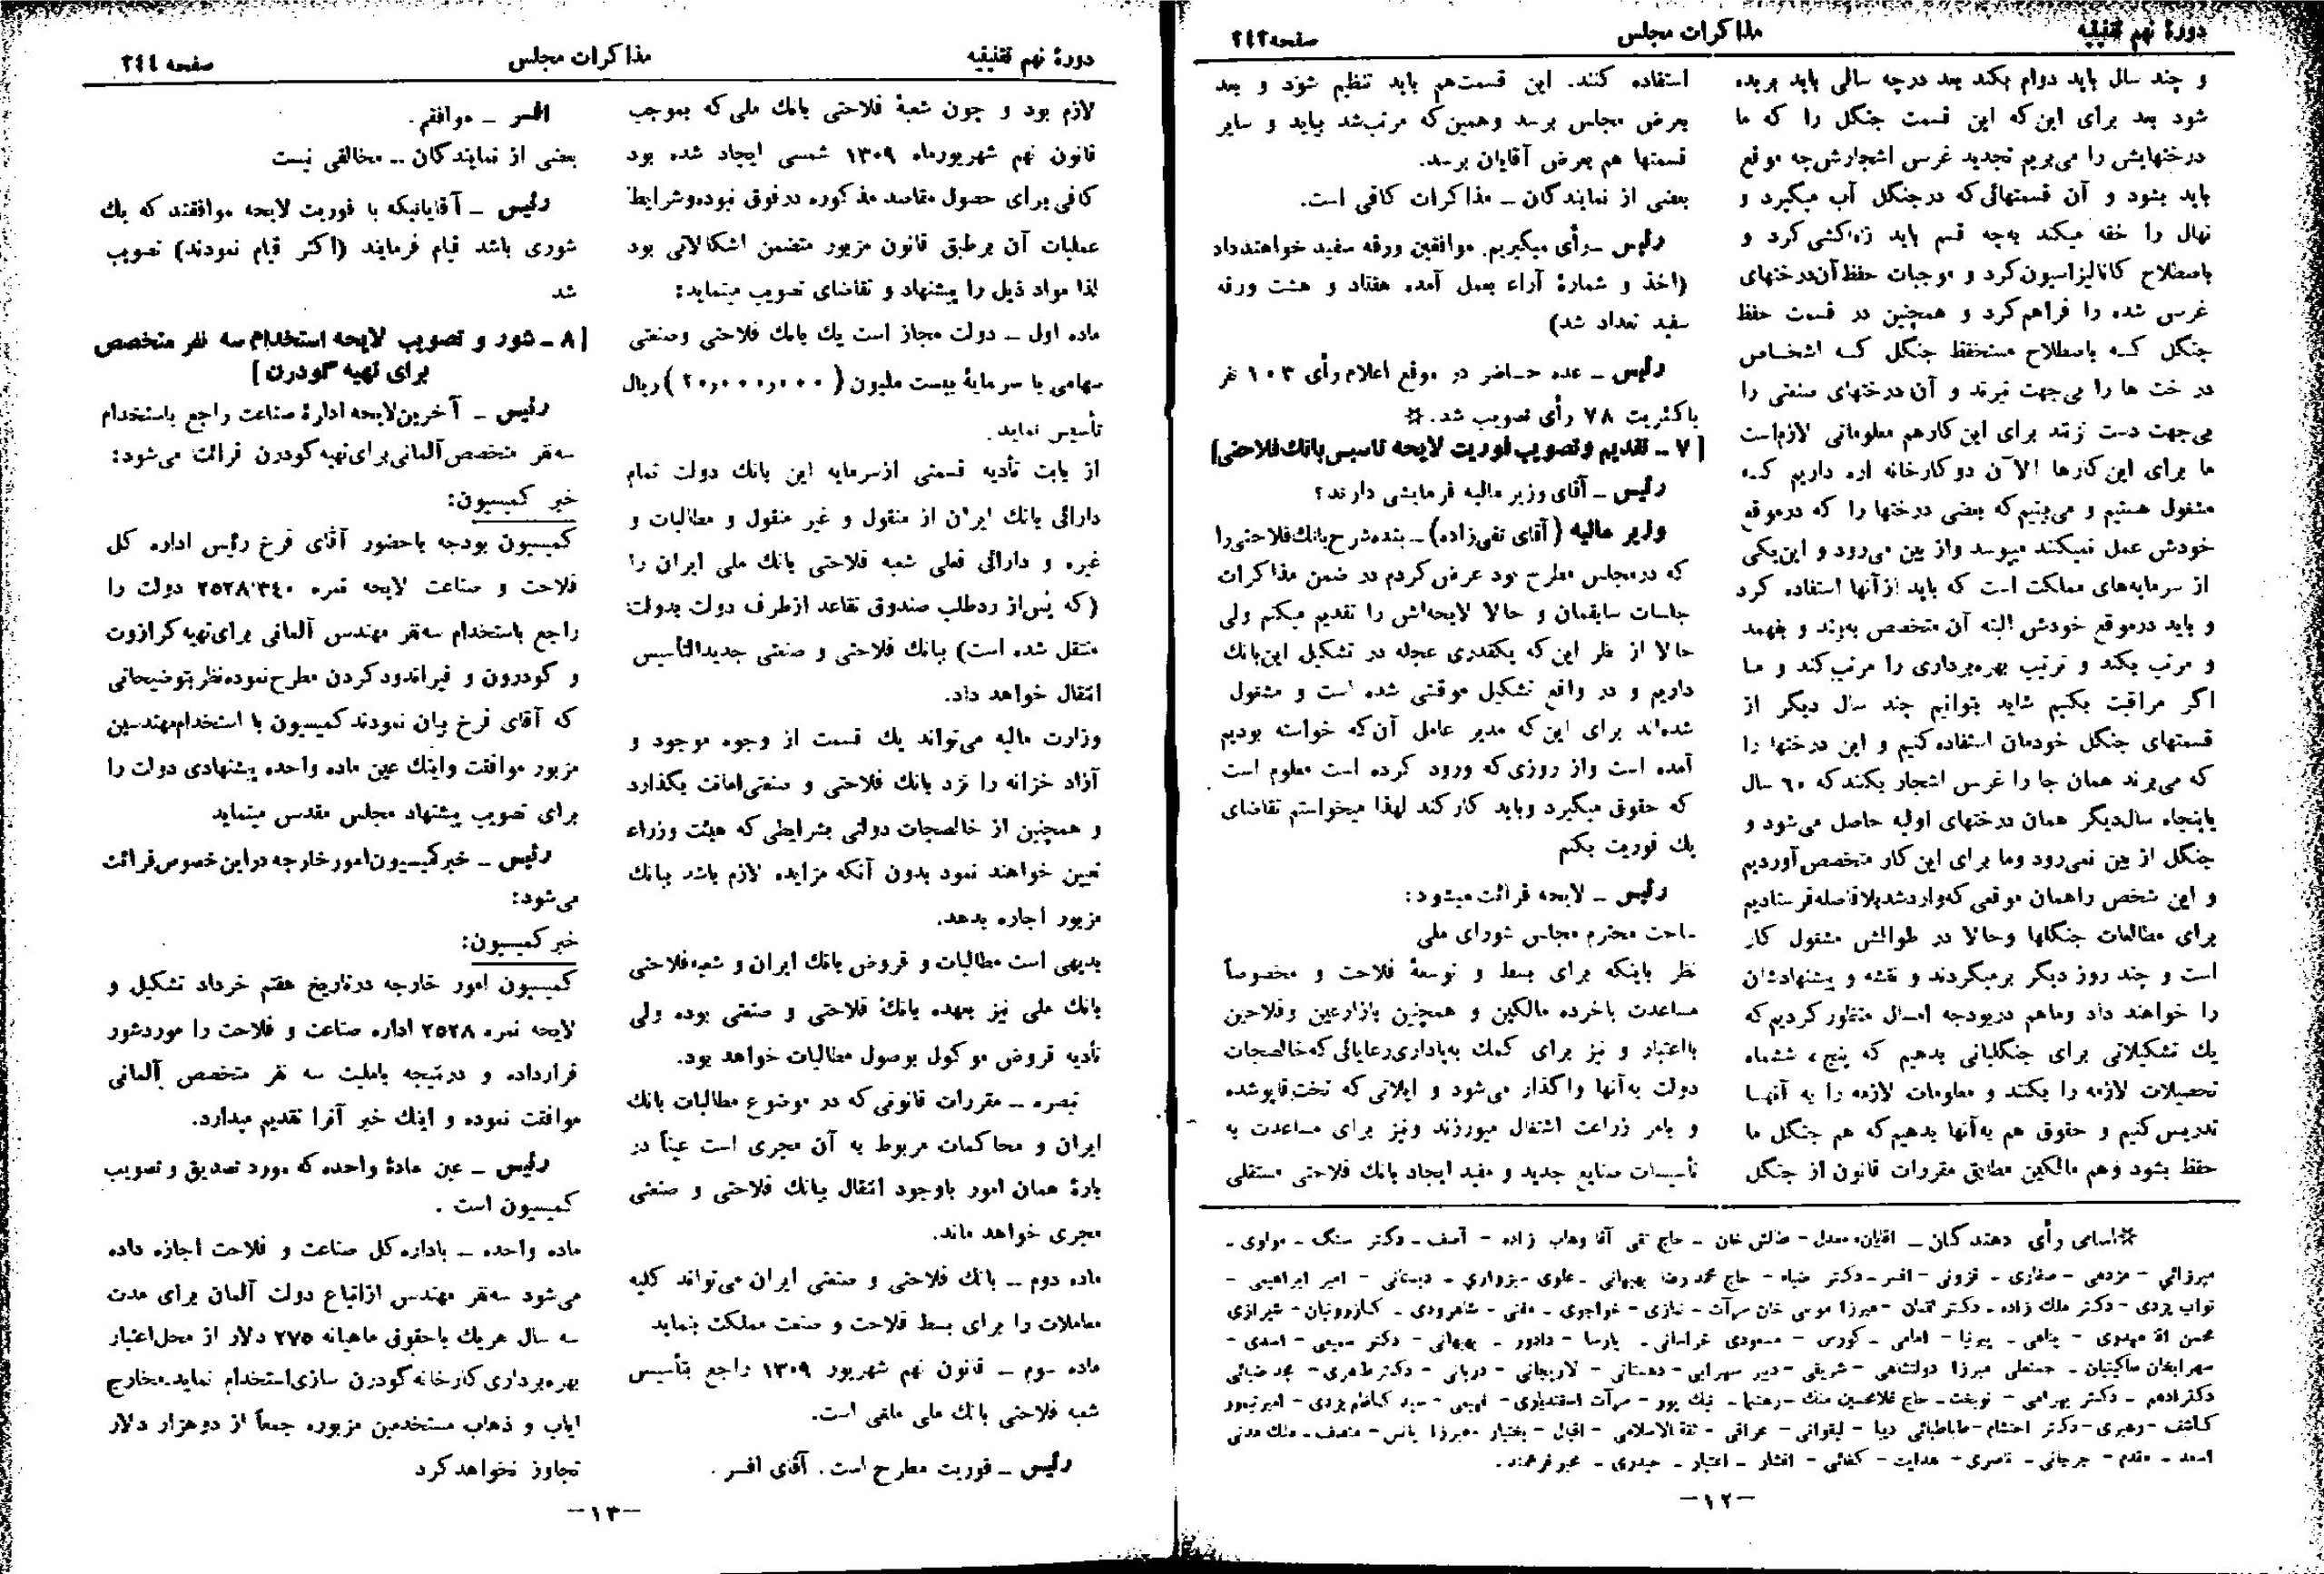 دورهٔ نهم تقنینیه
مذاکرات مجلس
صفحه ۲۴۳
و چند سال باید دوام بکند بعد درچه سالی باید بریده
شود بعد برای این‌که این قسمت جنگل را که ما
درختهایش را می‌بریم تجدید غرس اشجارش‌چه موقع
باید بشود و آن قسمتهائی‌که درجنگل آب میگیرد و
نهال را خفه میکند به‌چه قسم باید زه‌کشی‌کرد و
باصطلاح کانالیزاسیون‌کرد و موجبات حفظ آن‌درختهای
غرس شده را فراهم‌کرد و همچنین در قسمت حفظ
جنگل کـه باصطلاح مستحفظ جنگل کـه اشخـاص
درخت ها را بی‌جهت نبرند و آن درختهای صنعتی را
بی‌جهت دست نزنند برای این‌کارهم معلوماتی لازم‌است
ما برای این‌کارها الاآن دو کارخانه اره داریم کـه
مشغول هستیم و می‌بینیم‌که بعضی درختها را که درموقع
خودش عمل نمیکنند میپوسد واز بین می‌رود و این‌یکی
از سرمایه‌های مملکت است که باید ازآنها استفاده کرد
و باید درموقع خودش البته آن متخصص به‌بیند و بفهمد
و مرتب بکند و ترتیب بهره‌برداری را مرتب‌کند و مـا
اگر مراقبت بکنیم شاید بتوانیم چند سال دیگر از
قسمتهای جنگل خودمان استفاده‌کنیم و این درختها را
که می‌برند همان جا را غرس اشجار بکنند‌که ۶۰ سال
یاپنجاه سال‌دیگر همان درختهای اولیه حاصل می‌شود و
جنگل از بین نمی‌رود وما برای این کار متخصص‌آوردیم
و این شخص راهمان موقعی که‌واردشدبلافاصله‌فرستادیم
برای مطالعات جنگلها وحالا در طوالش مشغول کار
است و چند روز دیگر برمیگردند و نقشه و پیشنهادشان
را خواهند داد وماهم دربودجه امسال منظور کردیم‌که
یك تشکیلاتی برای جنگلبانی بدهیم که پنج ، ششماه
تحصیلات لازمه را بکنند و معلومات لازمه را به آنهـا
تدریس‌کنیم و حقوق هم به‌آنها بدهیم‌که هم جنگل ما
حفظ بشود وهم مالکین مطابق مقررات قانون از جنگل
استفاده کنند. این قسمت‌هم باید تنظیم شود و بعد
بعرض مجلس برسد وهمین‌که مرتب‌شد بیاید و سایر
قسمتها هم بعرض آقایان برسد.
بعضی از نمایندگان ـ مذاکرات کافی است.
رئیس ـ رأی میگیریم. موافقین ورقه سفید خواهندداد
(اخذ و شمارهٔ آراء بعمل آمده هفتاد و هشت ورقه
سفید تعداد شد)
رئیس ـ عده حـاضر در موقع اعلام رأی ۱۰۳ نفر
باکثریت ۷۸ رأی تصویب شد. ※
[ ۷ ـ تقدیم و تصویب فوریت لایحه تاسیس بانك فلاحتی]
رئیس ـ آقای وزیر مالیه فرمایشی دارند؟
وزیر مالیه (آقای تقی‌زاده) ـ بنده‌شرح‌بانك‌فلاحتی‌را
که درمجلس مطرح بود عرض کردم در ضمن مذاکرات
جلسات سابقمان و حالا لایحه‌اش را تقدیم میکنم ولی
حالا از نظر این‌که یکقدری عجله در تشکیل این‌بانك
داریم و در واقع تشکیل موقتی شده است و مشغول
شده‌اند برای این‌که مدیر عامل آن‌که خواسته بودیم
آمده است واز روزی‌که ورود کرده است معلوم است
که حقوق میگیرد وباید کارکند لهذا میخواستم تقاضای
یك فوریت بکنم
رئیس ـ لایحه قرائت میشود:
ساحت محترم مجلس شورای ملی
نظر باینکه برای بسط و توسعهٔ فلاحت و مخصوصاً
مساعدت باخرده مالکین و همچنین بازارعین وفلاحین
بااعتبار و نیز برای کمك به‌پاداری‌رعایائی‌که‌خالصجات
دولت به‌آنها واگذار می‌شود و ایلاتی که تخت‌قاپوشده
و بامر زراعت اشتغال میورزند ونیز برای مساعدت به
تأسیسات صنایع جدید و مفید ایجاد بانك فلاحتی مستقلی
※اسامی رأی دهندگان ـ آقایان: معدل - طالش خان - حاج تقی آقا وهاب زاده - آصف - دکتر سنگ - مولوی -
میرزائی - مژدهی - صفاری - قزونی - افسر - دکتر ضیاء - حاج محمدرضا بهبهانی - علوی سبزواری - دبستانی - امیر ابراهیمی -
نواب یزدی - دکتر ملك زاده - دکتر لقمان - میرزا موسی خان مرآت - نمازی - خواجوی - مفتی - شاهرودی - کازرونیان - شیرازی
محسن آقا مهدوی - پناهی - بیرنیا - امامی - کورس - مسعودی خراسانی - پارسا - دادور - بهبهانی - دکتر سمیعی - اسدی -
سهرابخان ساگینیان - حسنعلی میرزا دولتشاهی - شریفی - دبیر سهرابی - دهستانی - لاریجانی - دربانی - دکترطاهری - محمد ضیائی
دکترادهم - دکتر بهرامی - نوبخت - حاج غلامحسین ملك - رهنما - نیك پور - مرآت اسفندیاری - فهیمی - سید کاظم یزدی - امیرتیمور
کاشف - رهبری - دکتر احتشام - طباطبائی دیبا - لیقوانی - عراقی - ثقةالاسلامی - اقبال - بختیار - میرزا یانس - منصف - ملك مدنی
اسعد - مقدم - جرجانی - ناصری - هدایت - کفائی - افشار - اعتبار - حیدری - مخبرفرهمند.
-۱۲-
دورهٔ نهم تقنینیه
مذاکرات مجلس
صفحه ۲۴۴
لازم بود و چون شعبهٔ فلاحتی بانك ملی‌که بموجب
قانون نهم شهریورماه ۱۳۰۹ شمسی ایجاد شده بود
کافی برای حصول مقاصد مذکوره درفوق نبوده‌وشرایط
عملیات آن برطبق قانون مزبور متضمن اشکالاتی بود
لذا مواد ذیل را پیشنهاد و تقاضای تصویب مینماید:
ماده اول ـ دولت مجاز است یك بانك فلاحتی وصنعتی
سهامی با سرمایهٔ بیست ملیون (۲۰٫۰۰۰٫۰۰۰) ریال
تأسیس نماید.
از بابت تأدیه قسمتی ازسرمایه این بانك دولت تمام
دارائی بانك ایران از منقول و غیر منقول و مطالبات و
غیره و دارائی فعلی شعبه فلاحتی بانك ملی ایران را
(که پس‌از ردطلب صندوق تقاعد ازطرف دولت بدولت
منتقل شده است) ببانك فلاحتی و صنعتی جدیدالتأسیس
انتقال خواهد داد.
وزارت مالیه می‌تواند یك قسمت از وجوه موجود و
آزاد خزانه را نزد بانك فلاحتی و صنعتی‌امانت بگذارد
و همچنین از خالصجات دولتی بشرایطی‌که هیئت وزراء
تعیین خواهند نمود بدون آنکه مزایده لازم باشد ببانك
مزبور اجاره بدهد.
بدیهی است مطالبات و قروض بانك ایران و شعبه‌فلاحتی
بانك ملی نیز بعهده بانك فلاحتی و صنعتی بوده ولی
تأدیه قروض موکول بوصول مطالبات خواهد بود.
تبصره ـ مقررات قانونی‌که در موضوع مطالبات بانك
ایران و محاکمات مربوط به آن مجری است عیناً در
بارهٔ همان امور باوجود انتقال ببانك فلاحتی و صنعتی
مجری خواهد ماند.
ماده دوم ـ بانك فلاحتی و صنعتی ایران می‌تواند کلیه
معاملات را برای بسط فلاحت و صنعت مملکت بنماید
ماده سوم ـ قانون نهم شهریور ۱۳۰۹ راجع بتأسیس
شعبه فلاحتی بانك ملی ملغی است.
رئیس ـ فوریت مطرح است. آقای افسر.
افسر ـ موافقم.
بعضی از نمایندگان ـ مخالفی نیست
رئیس ـ آقایانیکه با فوریت لایحه موافقند که یك
شوری باشد قیام فرمایند (اکثر قیام نمودند) تصویب
شد
[۸ ـ شور و تصویب لایحه استخدام سه نفر متخصص
برای تهیه گودرن]
رئیس ـ آخرین‌لایحه ادارهٔ صناعت راجع باستخدام
سه‌نفر متخصص‌آلمانی‌برای‌تهیه‌کودرن قرائت می‌شود:
خبر کمیسیون:
کمیسیون بودجه باحضور آقای فرخ رئیس اداره کل
فلاحت و صناعت لایحه نمره ۲۵۲۸٬۳۴۰ دولت را
راجع باستخدام سه‌نفر مهندس آلمانی برای‌تهیه‌کرازوت
و کودرون و قیراندود کردن مطرح‌نموده‌نظربتوضیحاتی
که آقای فرخ بیان نمودند کمیسیون با استخدام‌مهندسین
مزبور موافقت واینك عین ماده واحده پیشنهادی دولت را
برای تصویب پیشنهاد مجلس مقدس مینماید
رئیس ـ خبرکمیسیون‌امورخارجه دراین‌خصوص‌قرائت
می‌شود:
خبرکمیسیون:
کمیسیون امور خارجه درتاریخ هفتم خرداد تشکیل و
لایحه نمره ۲۵۲۸ اداره صناعت و فلاحت را موردشور
قرارداده و درنتیجه باملیت سه نفر متخصص آلمانی
موافقت نموده و اینك خبر آنرا تقدیم میدارد.
رئیس ـ عین مادهٔ واحده‌که مورد تصدیق و تصویب
کمیسیون است .
ماده واحده ـ باداره‌کل صناعت و فلاحت اجازه داده
می‌شود سه‌نفر مهندس ازاتباع دولت آلمان برای مدت
سه سال هریك باحقوق ماهیانه ۲۷۵ دلار از محل‌اعتبار
بهره‌برداری‌کارخانه‌گودرن سازی‌استخدام نماید.مخارج
ایاب و ذهاب مستخدمین مزبوره جمعاً از دوهزار دلار
تجاوز نخواهدکرد
-۱۳-